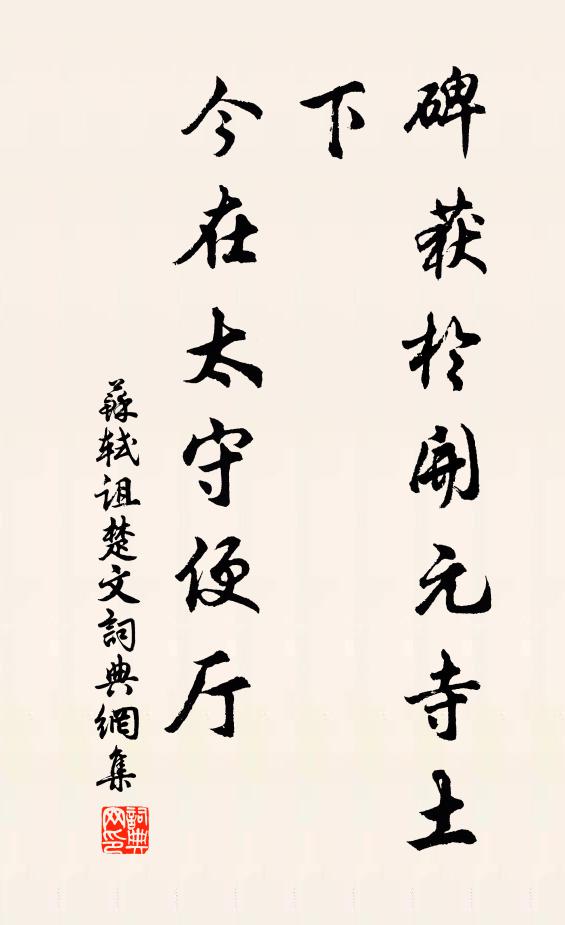 碑获於開元寺土
下
今在太守便厅
蘇軾诅楚文詞典網集
詞典
网印